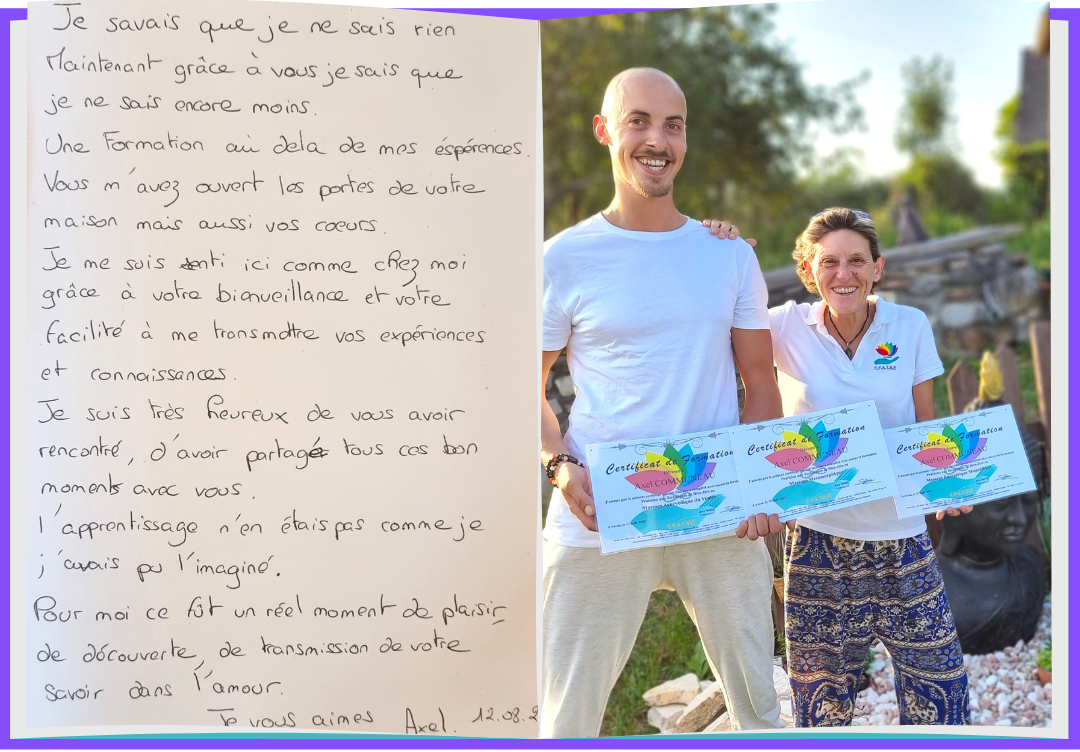 Je savais que je ne sais rien
Maintenant grâce à vous je sais que
je ne sais encore moins.
Une Formation au dela de mes éspérences.
Vous m'avez ouvert les portes de votre
maison mais aussi vos coeurs.
Je me suis senti ici comme chez moi
grâce à votre bienveillance et votre
facilité à me transmettre vos expériences
et connaissances.
Je suis très heureux de vous avoir
rencontré, d'avoir partagé tous ces bon
moments avec vous.
l'apprentissage n'en étais pas comme je
j'avais pu l'imaginé.
Pour moi ce fût un réel moment de plaisir
de découverte, de transmission de votre
savoir dans l'amour.
Je vous aimes Axel. 12.08.2
Certificat de Formation
Axel COMMUNEAU
Certificat de Formation
Axel COMMUNEAU
Certificat de Formation
Axel COMMUNEAU